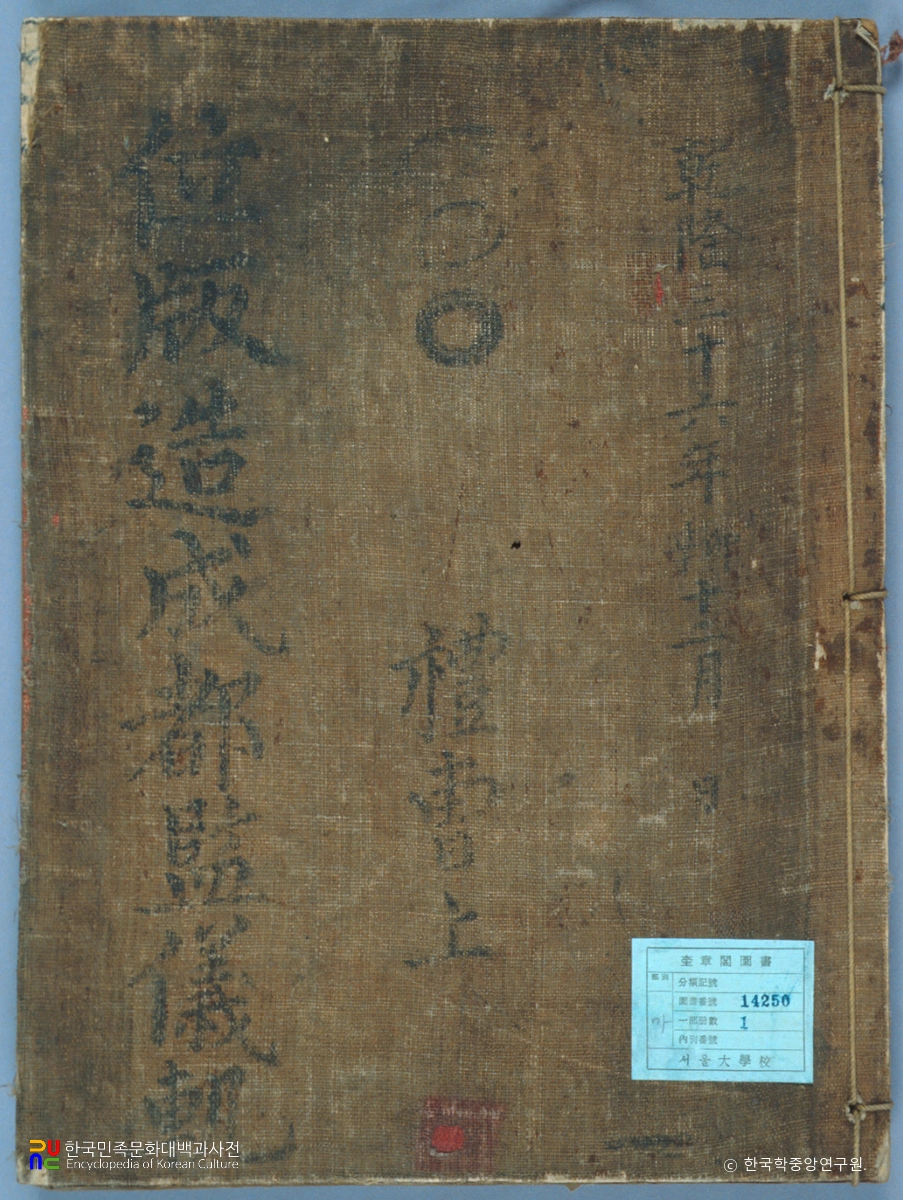 乾隆三十六年 十二月 日
禮曹上
位版造成都監儀軌
奎章閣圖書
分類記號
圖書番號 14250
一部冊數 1
內別番號
서울大學校
한국민족문화대백과사전
Encyclopedia of Korean Culture
© 한국학중앙연구원